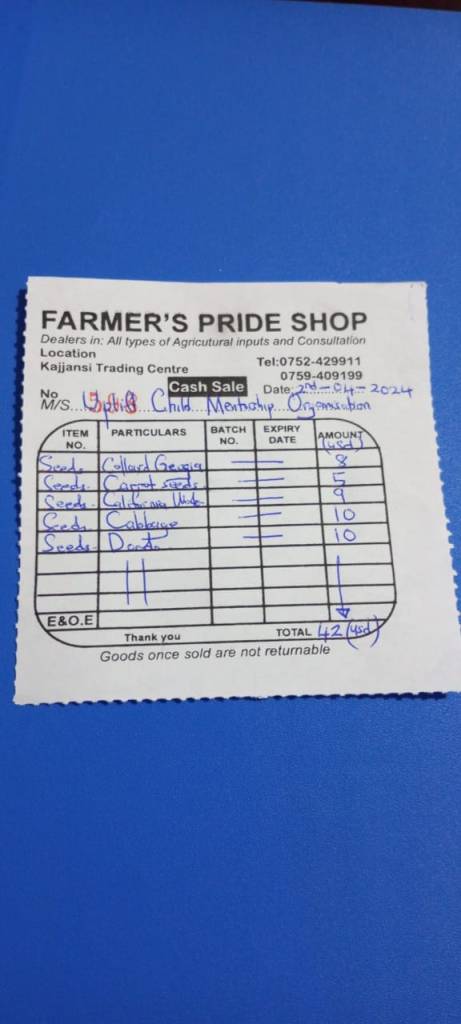 FARMER'S PRIDE SHOP
Dealers in: All types of Agricutural inputs and Consultation
Location
Kajjansi Trading Centre
Tel:0752-429911
0759-409199
Cash Sale
Date: 2nd-04-2024
No
M/S... Uplift Child Mentorship Organisation
ITEM NO. PARTICULARS BATCH NO. EXPIRY DATE AMOUNT (usd)
Seeds Collard Georgia 8
Seeds Carrot seeds 5
Seeds California 9
Seeds Cabbage 10
Seeds 10
E&O.E
Thank you TOTAL 42 (usd)
Goods once sold are not returnable